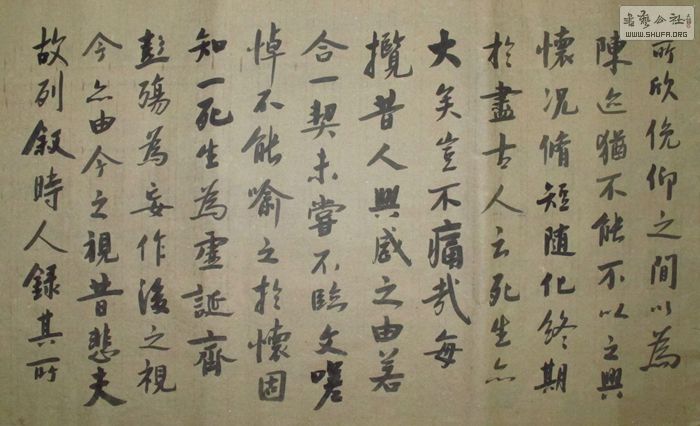 所欣俛仰之間以為
陳迹猶不能不以之興
懷况脩短随化终期
於盡古人云死生亦
大矣豈不痛哉每
攬昔人興感之由若
合一契未嘗不臨文嗟
悼不能喻之於懷固
知一死生為虛誕齊
彭殤為妄作後之視
今亦由今之視昔悲夫
故列叙時人錄其所
书艺公社
WWW.SHUFA.ORG